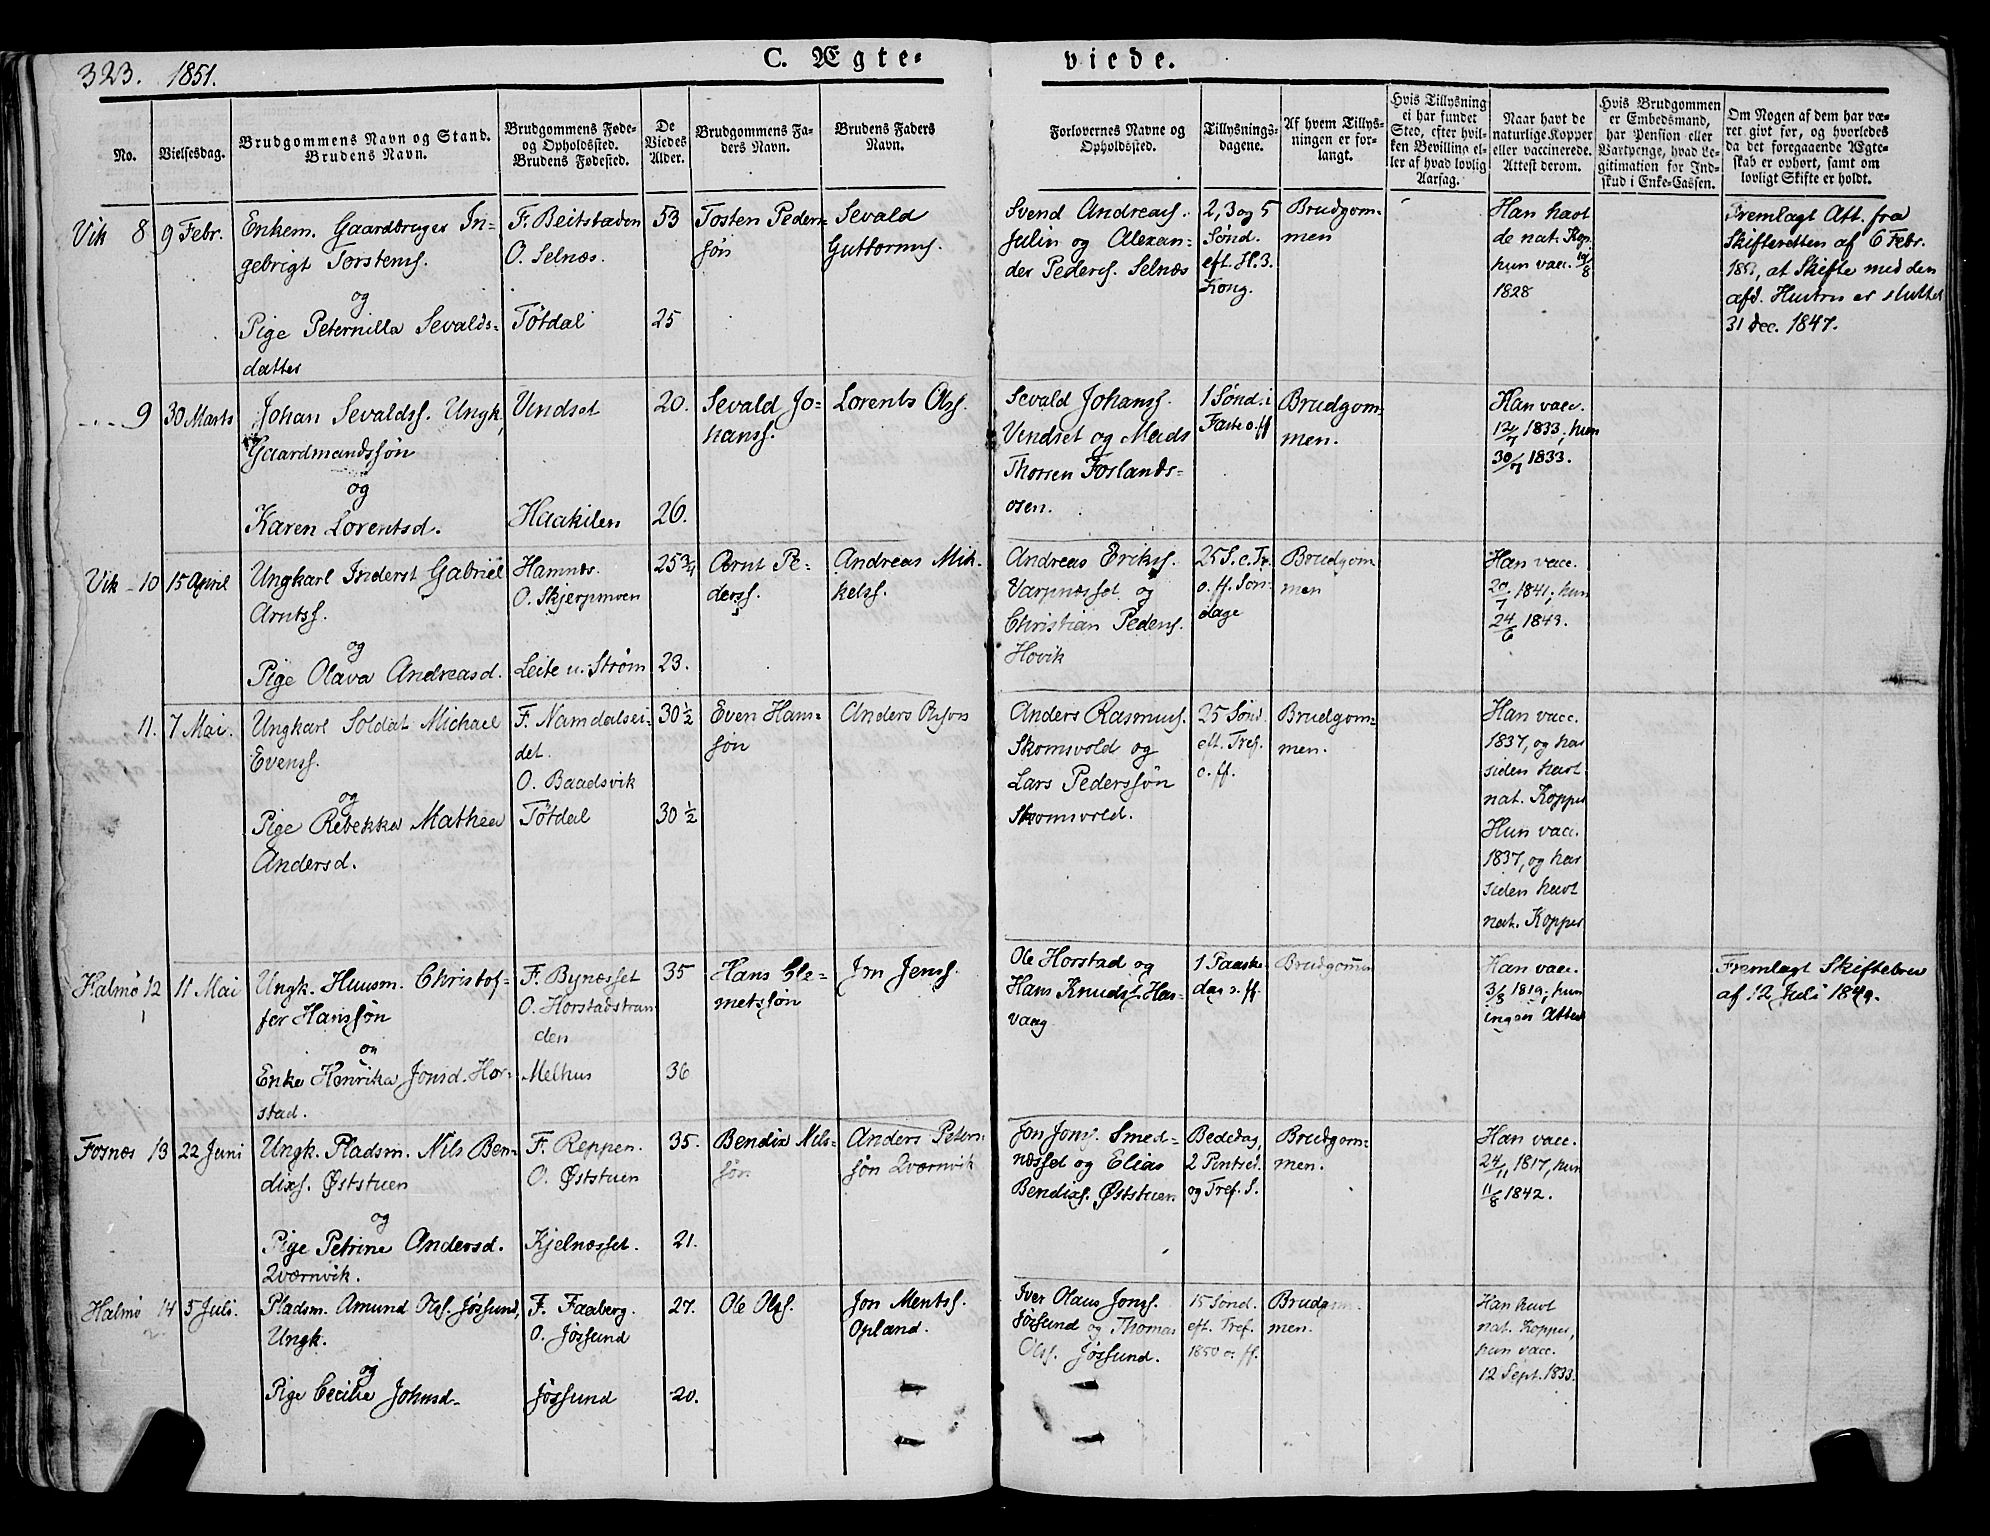 323. 1851.
C. Ægte-
viede.
No.
Vielsesdag.
Brudgommens Navn og Stand.
Brudens Navn.
Brudgommens Føde-
og Opholdssted.
Brudens Fødested.
De
Viedes
Alder.
Brudgommens Fa-
ders Navn.
Brudens Faders
Navn.
Forlovernes Navne og
Opholdssted.
Tillysnings-
dagene.
Af hvem Tillys-
ningen er for-
langt.
Hvis Tillysning
ei har fundet
Sted, efter hvil-
ken Bevilling el-
ler af hvad lovlig
Aarsag.
Naar havt de
naturlige Kopper
eller vaccinerede.
Attest derom.
Hvis Brudgommen
er Embedsmand,
har Pension eller
Vartpenge, hvad Le-
gitimation for Ind-
skud i Enke-Cassen.
Om Nogen af dem har væ-
ret givt før, og hvorledes
da det foregaaende Ægte-
skab er ophørt, samt om
lovligt Skifte er holdt.
Vik 8
9 Febr.
Enkem. Gaardbruger In-
gebrigt Torstens.
og
Pige Peternilla Sevalds-
datter
F. Beitstaden
O. Selnæs.
Tøtdal
53
25
Tosten Peder-
søn
Sevald
Guttorms.
Svend Andreas.
Julin og Alexan-
der Peders. Selnæs
2, 3 og 5
Sønd.
eft. H. 3.
Kong.
Brudgom-
men
Han havt
de nat. Kop.
hun vacc. 19/8
1828
Fremlagt Att. fra
Skifteretten af 6 Febr.
1851, at Skifte med den
afd. Hustru er sluttet
31 Dec. 1847.
9
30 Marts
Johan Sevaldss. Ungk.
Gaardmandssøn
og
Karen Lorentsd.
Vendset
Haakilen
20.
26.
Sevald Jo-
hanss.
Lorents Olss.
Sevald Johanss.
Vendset og Mads
Thorsen Foslands-
osen.
1 Sønd. i
Faste o. ff
Brudgom-
men.
Han vacc.
12/7 1833, hun
30/7 1833.
Vik - 10
15 April
Ungkarl Inderst Gabriel
Arntss.
og
Pige Olava Andreasd.
Hamnes.
O. Skjerpmoen
Leite u. Strøm
25 3/4
23.
Arnt Pe-
derss.
Andreas Mik-
kelss.
Andreas Erikss.
Varpnesset og
Christian Peders.
Hovik
25 S. e. Tr.
o. ff. Søn-
dage
Brudgom-
men
Han vacc.
20/7 1841, hun
24/6 1843.
11.
7 Mai.
Ungkarl Soldat Michael
Evenss.
og
Pige Rebekka Mathea
Andersd.
F. Namdalsei-
det.
O. Baadsvik
Tøtdal
30 1/2
30 1/2
Even Hans-
søn
Anders
Anders Rasmuss.
Skomsvold og
Lars Pederssøn
Skomsvold.
25 Sønd.
eft. Tref.
o. ff.
Brudgom-
men.
Han vacc.
1837, og har
siden havt
nat. Kopper
Hun vacc.
1837, og har
siden havt
nat. Kopper
Halmø 12
11 Mai
Ungk. Huusm. Christof-
fer Hanssøn
og
Enke Henrika Jonsd. Hor-
stad.
F. Bynæsset
O. Horstadstran
den
Melhus
35
36
Hans Cle-
metssøn
Jon Jenss.
Ole Horstad og
Hans Knuds. Has-
vaag
1 Paaske
dag o. ff.
Brudgom̄en
Han vacc.
3/8 1819, hun
ingen Attest
Fremlagt Skiftebrev
af 12 Juli 1849.
Fosnæs 13
22 Juni
Ungk. Pladsm. Nils Ben-
dixs. Øststuen
og
Pige Petrine Andersd.
Qværnvik.
F. Reppen.
O. Øststuen
Kjelnæsset.
35.
21.
Bendix Nils-
søn
Anders Peter-
søn Qværnvik
Jon Jonss. Smed-
næsset og Elias
Bendixs. Øststuen
Bededag,
2 Pintsed.
og Tref. S.
Brudgom-
men.
Han vacc.
24/11 1817, hun
11/8 1842.
Halmø 14
5 Juli.
Pladsm. Amund Olss. Jøssund,
Ungk.
og
Pige Cecilie Johnsd.
F. Faaberg.
O. Jøssund
Jøssund
27.
20.
Ole Olss.
Jon Mentss.
Opland.
Iver Olaus Jonss.
Jøssund og Thomas
Olss. Jøssund.
15 Sønd.
eft. Tref.
1850 o. ff.
Brudgom-
men.
Han havt
nat. Kopper,
hun vacc.
12 Sept. 1833.